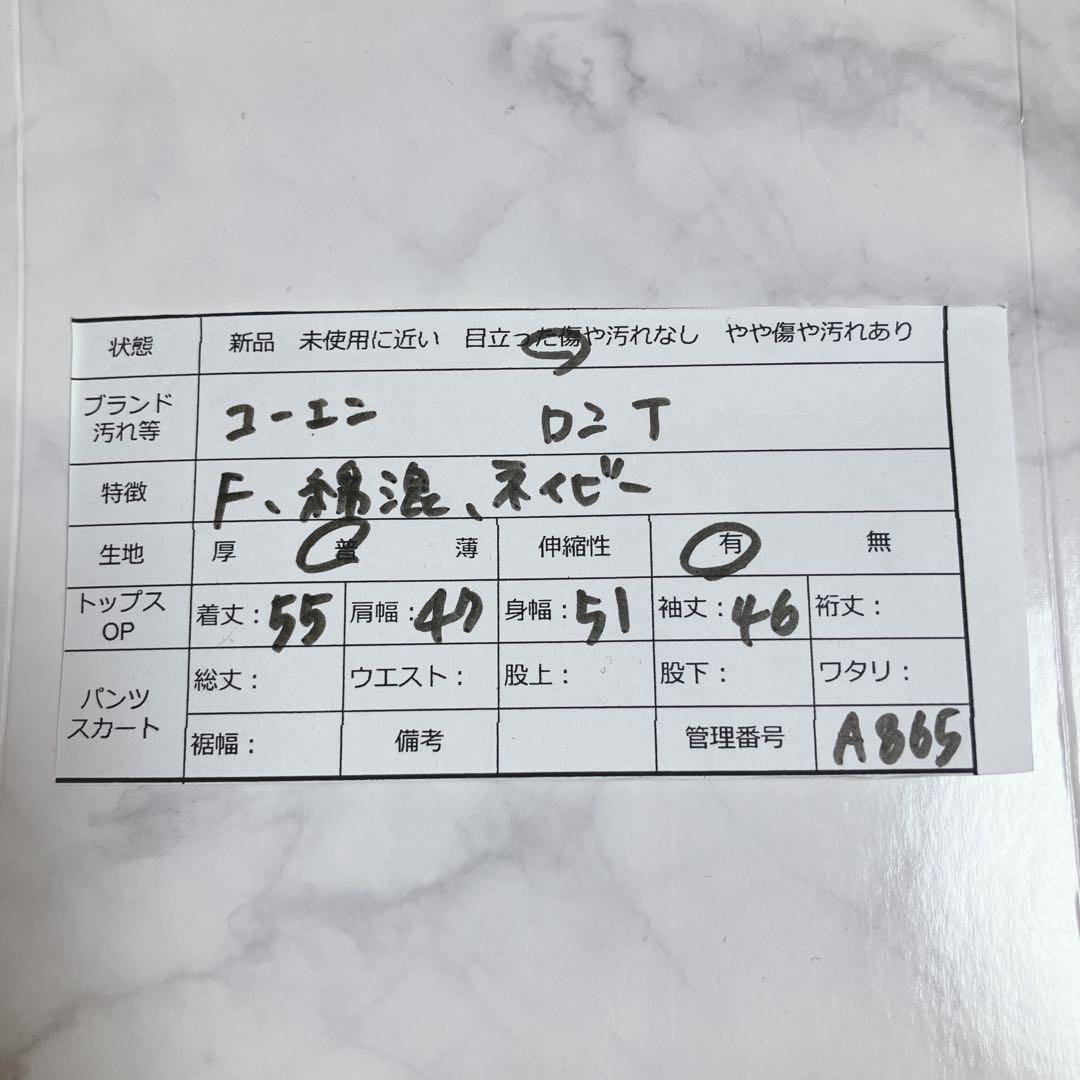 状態 新品 未使用に近い 目立った傷や汚れなし やや傷や汚れあり
ブランド
汚れ等 コーエン ロンT
特徴 F、綿混、ネイビー
生地 厚 普 薄 伸縮性 有 無
トップス
OP 着丈：55 肩幅：47 身幅：51 袖丈：46 裄丈：
パンツ
スカート 総丈： ウエスト： 股上： 股下： ワタリ：
裾幅： 備考 管理番号 A865